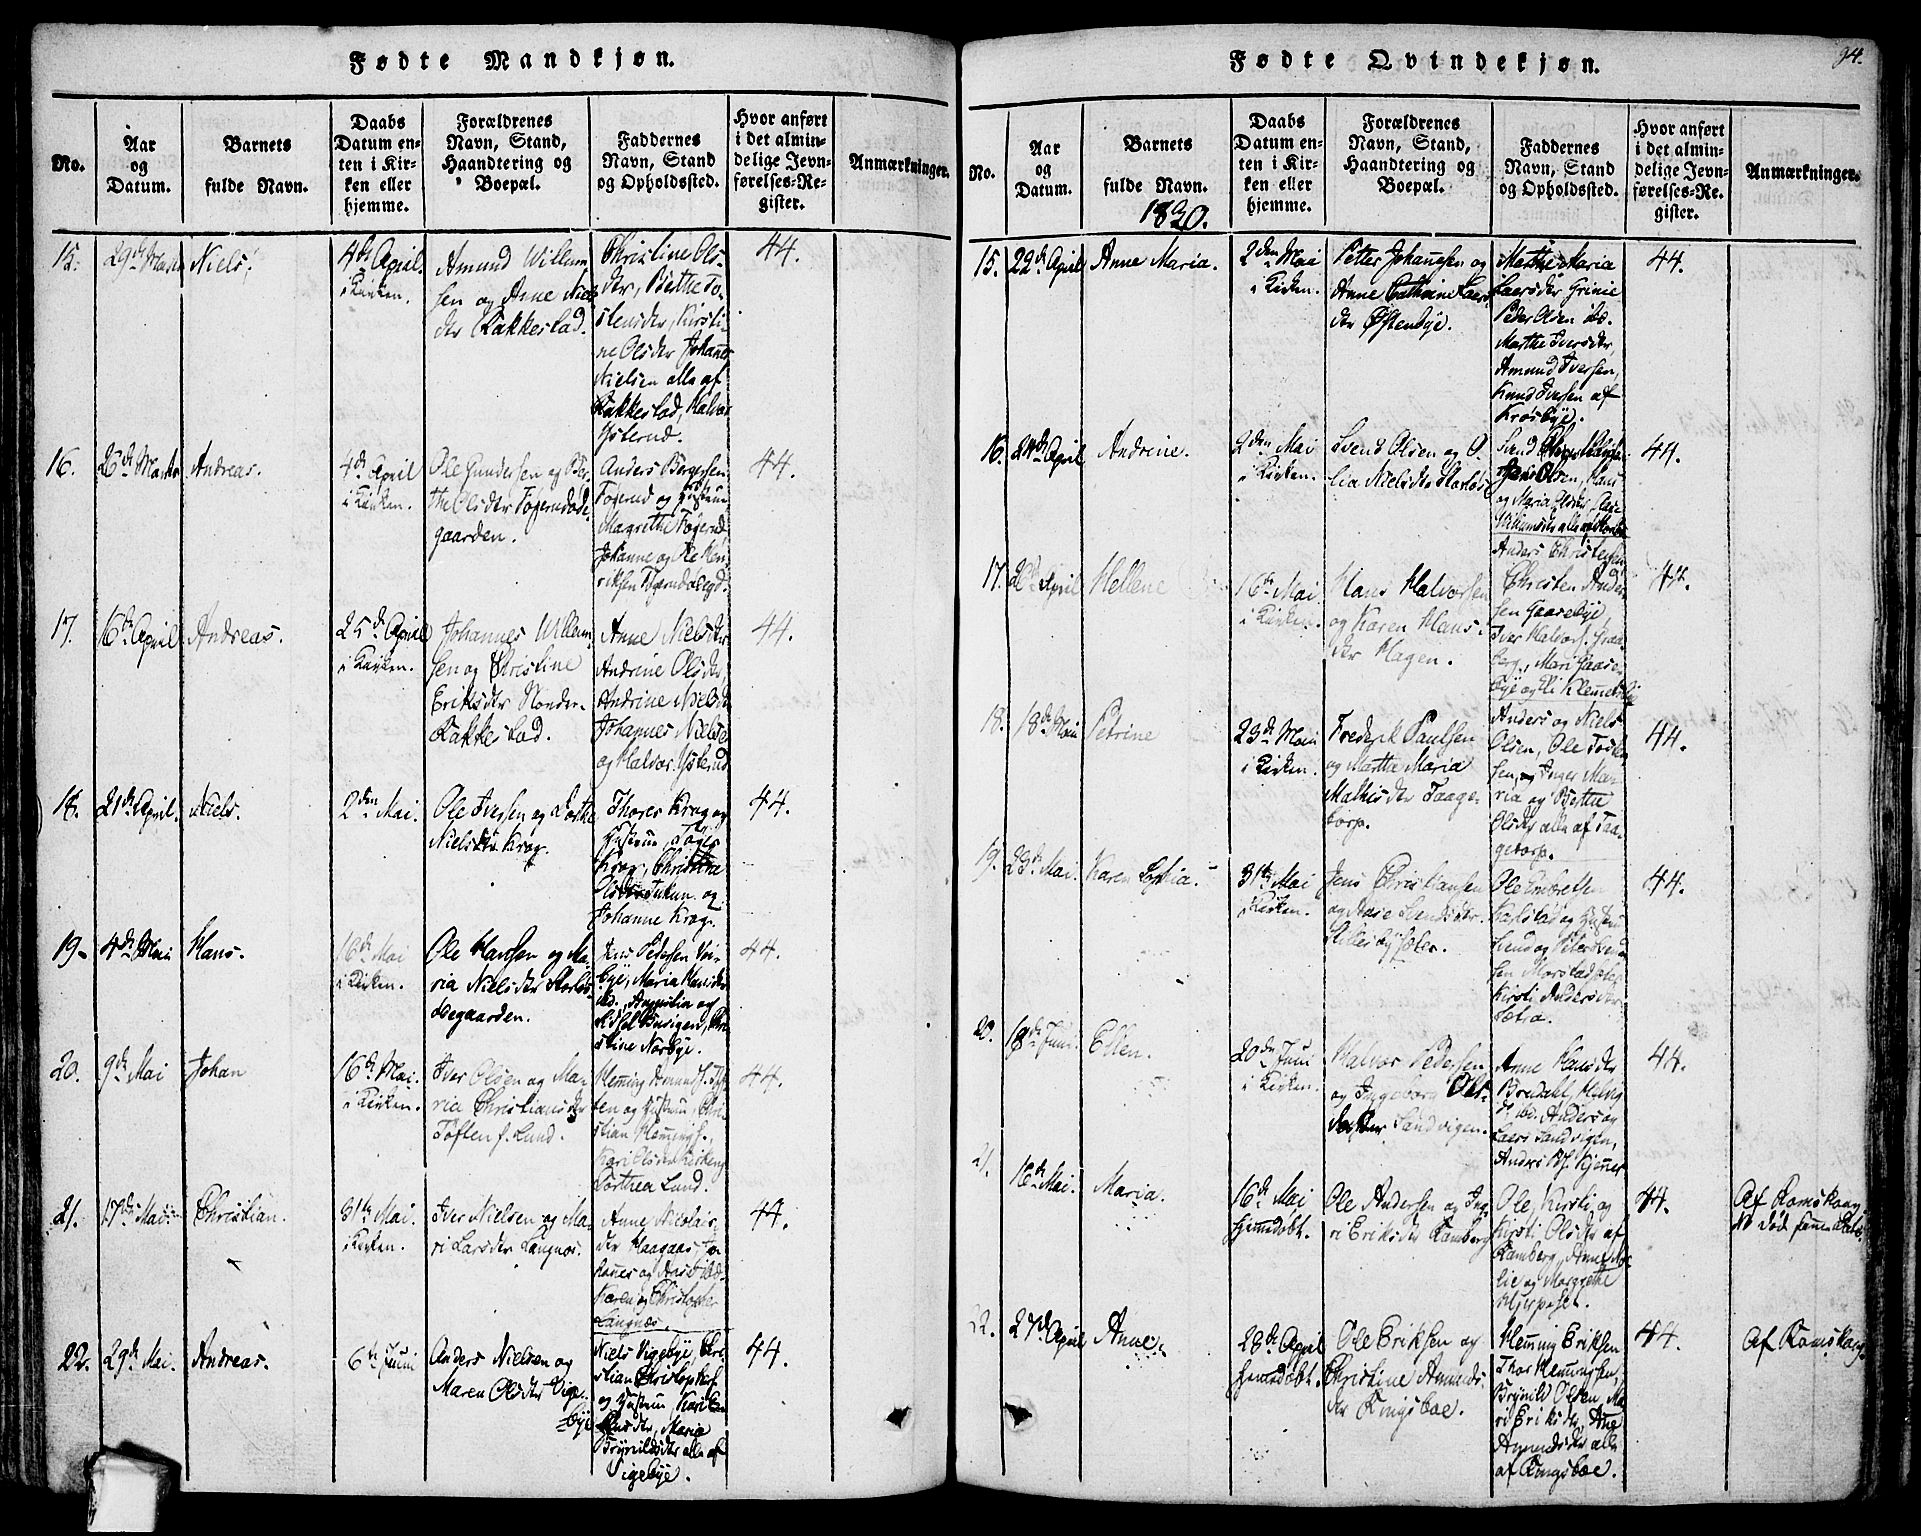 Fødte Mandkjøn.
No.
Aar
og
Datum.
Barnets
fulde Navn.
Daabs
Datum en-
ten i Kir-
ken eller
hjemme.
Forældrenes
Navn, Stand,
Haandtering og
Boepæl.
Faddernes
Navn, Stand
og Opholdssted.
Hvor anført
i det almin-
delige Jevn-
førelses-Re-
gister.
Anmærkninger.
15. 29de Marts Niels.
4de April
i Kirken.
Amund Willum-
sen og Anne Niels
der Rakkestad.
Christine Ols-
der, Berthe To-
stensder, Kirsti-
ne Olsder Johannes
Nielsen alle af
Rakkestad, Halvor
Ysterud.
44.
16. 26de Marts Andreas.
4de April
i Kirken.
Ole Gundersen og Ber-
the Olsder Togerudøde-
gaarden.
Anders Bergersen
Togerud og Hustrue
Magrethe Togerud
Johanne og Ole Hen-
riksen
44.
17. 16de April Andreas.
25de April
i Kirken.
Johannes Willum-
sen og Christine
Eriksder Nordre-
Rakkestad.
Anne Nielsder
Andrine Olsder,
Andrine Nielsd
Johannes Nielse
og Halvor Ysterud
44.
18. 21de April. Niels.
2den Mai.
Ole Iversen og Dorthe
Nielsder Krog.
Thores Krog og
Hustrue,
Krog, Christine
Olsder og
Johanne Krog.
44.
19. 4de Mai Hans.
16de Mai
i Kirken.
Ole Hansen og Ma-
ria Nielsder Storløs-
ødegaarden.
Jens Pedersen Vei-
bye, Maria Hansder
ibd.
stine Norbye.
44.
20. 9de Mai Johan
16de Mai.
i Kirken.
Iver Olsen og Ma-
ria Christiansder
Toften f. Lund.
Hemming Amunds. Tof-
ten og Hustrue, Chri-
stian Hemmings.,
Kari Olsder
Dorthea Lund.
44.
21. 17de Mai Christian.
31te Mai.
i Kirken.
Iver Nielsen og Ma-
ri Larsder Langnæs.
Anne Nicolais-
der Haagaas, Jo-
hannes og
Karen og Christopher
Langnæs.
44.
22. 29de Mai. Andreas.
6te Juni
Anders Nielsen og
Maren Olsder Vige-
bye
Niels Vigebye, Chri-
stian Christophers.
og Hustrue, Kari
Maria
Brynildsder alle af
Vigebye.
44.
Fødte Qvindekjøn.
94.
No.
Aar
og
Datum.
Barnets
fulde Navn.
1830.
Daabs
Datum en-
ten i Kir-
ken eller
hjemme.
Forældrenes
Navn, Stand,
Haandtering og
Boepæl.
Faddernes
Navn, Stand
og Opholdssted.
Hvor anført
i det almin-
delige Jevn-
førelses-Re-
gister.
Anmærkninger.
15. 22de April Anne Maria.
2den Mai
i Kirken.
Petter Johannesen og
Anne Cathrine Laers
der Østenbye.
Mathe Maria
Laersder Grinie
Peder Olsen ibd.
Marthe Iversder,
Amund Iversen,
Knud Iversen af
Krosbye.
44.
16. 24de April Andrine.
2den Mai
i Kirken.
Svend Olsen og O-
lia Nielsder Storløs
Svend
Olsen, Hans
og Maria Olsder,
44.
17. 26de April Hellene
16de Mai.
i Kirken.
Hans Halvorsen
og Karen Hans-
der Hagen.
Anders Christensen
Christen Ander-
sen Gaasebye,
Iver Halvors.
berg, Mari Gaase-
bye og
44.
18. 18de Mai Petrine
23de Mai
i Kirken.
Frederik Paulsen
og Martha Maria
Mathisder Taage-
torp.
Anders og Niels
Olsen, Ole
sen, og Inger Ma-
ria og Berthe
Olsder alle af Taa-
getorp.
44.
19. 23de Mai. Karen Sophia.
31te Mai
i Kirken.
Jens Christiansen
og Aase Svendsder
Ole Embretsen
Karlstad og Hustrue
Svend og Peter Svend-
sen
Kirsti Andersder
44.
20. 18de Juni Ellen.
20de Juni
i Kirken.
Halvor Pedersen
og Ingeborg Ols-
datter Sandvigen.
Anne Hansder
Bredahl,
ibd. Anders og
Laers Sandvigen,
Anders
44.
21. 16de Mai. Maria.
16de Mai
hjemmedøbt.
Ole Andersen og Ing-
ri Eriksder Ramberg
Ole, Kirsti og
Kirsti Olsder af
Ramberg, Anne
lie og Margrethe
44.
Af Romskoug
22. 27de April Anne.
28de April
hjemmedøbt.
Ole Eriksen og
Christine Amunds-
der Kingsboe.
Hemming Eriksen
Thor Hemmingsen,
Brynild Olsen, Ma-
ri Eriksder, Anne
Amundsder alle
af Kingsboe.
44.
Af Romskoug